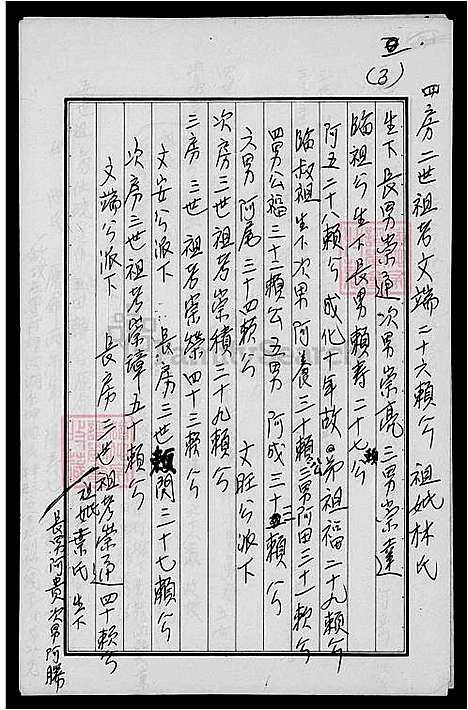 (3)
四房二世祖考文端二十六賴公 祖妣林氏
生下長男崇通次男崇亮三男崇達
臨祖公生下長男賴壽二十七賴公
阿五二十八賴公 成化十年故 弟祖福二十九賴公
臨叔祖生下次男阿養三十賴公三男阿田三十一賴公
四男公福三十二賴公五男 阿成三十三賴公
六男 阿尾三十四賴公 文旺公派下
次房三世祖考崇積三十九賴公
三房 三世 祖考崇榮四十三賴公
文安公派下 長房三世賴閃三十七賴公
次房三世祖考崇璋五十賴公
文端公派下 長房三世祖考崇通四十賴公
祖妣葉氏 生下
長男阿貴次男阿勝